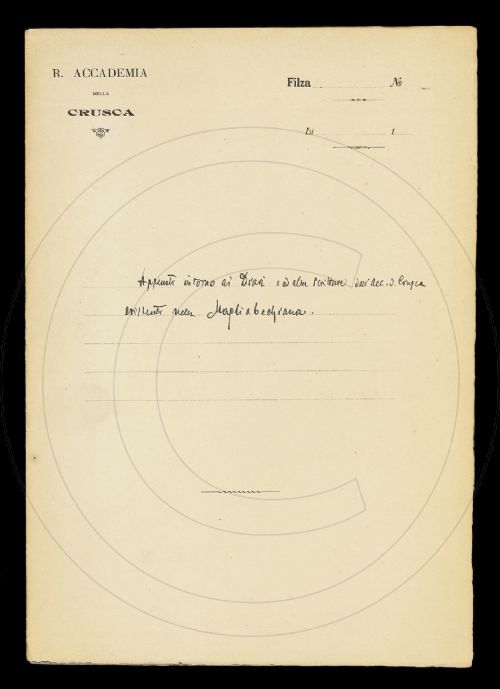 R. ACCADEMIA
DELLA
CRUSCA
Filza No
Lì 1
Appunti intorno ai Diari e ad altre scritture dell'Acc. d. Crusca
esistenti nella Magliabechiana.